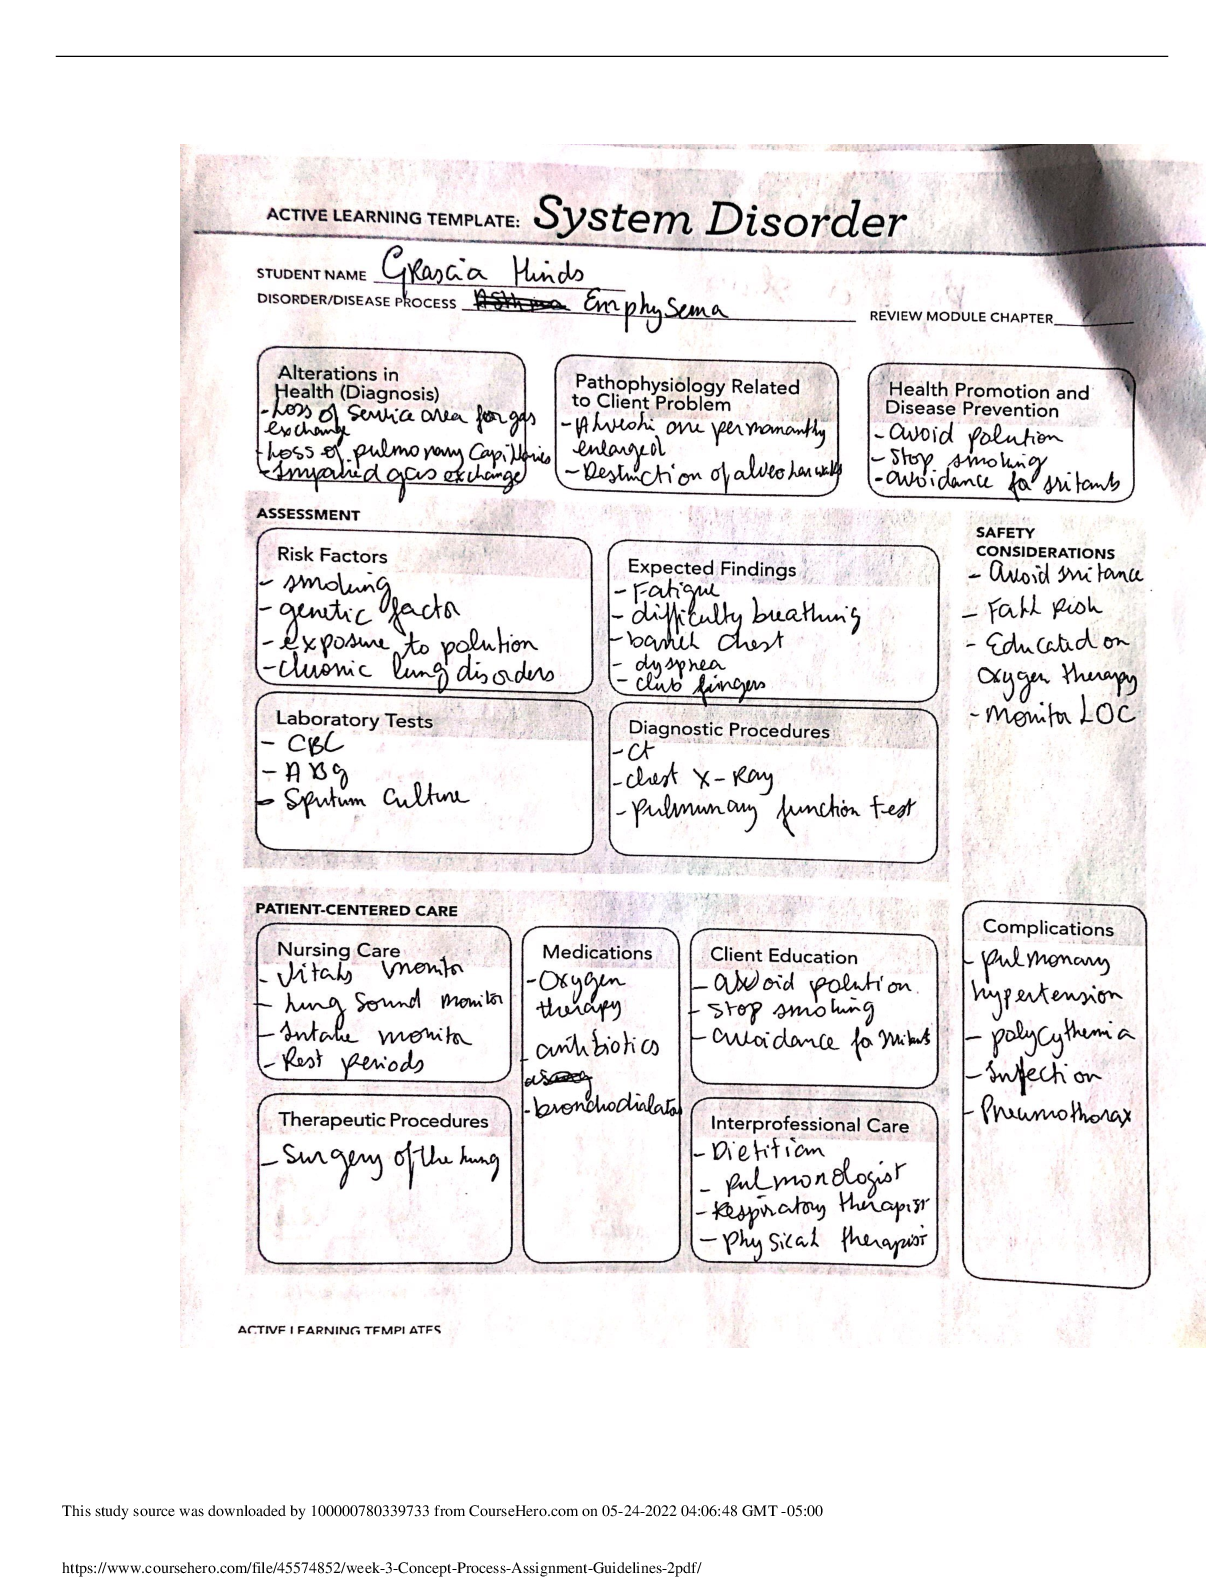 ACTIVE LEARNING TEMPLATE: System Disorder
STUDENT NAME Grascia Hinds
DISORDER/DISEASE PROCESS Emphysema
REVIEW MODULE CHAPTER
Alterations in
Health (Diagnosis)
- Loss of service area for gas
exchange
- Loss of pulmonary Capillaries
- Impaired gas exchange
Pathophysiology Related
to Client Problem
- Alveoli are permananthy
enlarged
- Destruction of alveolar walls
Health Promotion and
Disease Prevention
- avoid polution
- Stop smoking
- avoidance fo irritants
ASSESSMENT
Risk Factors
- smoking
- genetic factor
- exposure to polution
- chronic lung disorders
Expected Findings
- Fatigue
- difficulty breathing
- barrel chest
- dyspnea
- club fingers
SAFETY
CONSIDERATIONS
- Avoid irritance
- Fall Risk
- Educated on
oxygen therapy
- Monitor LOC
Laboratory Tests
- CBC
- ABg
- Sputum Culture
Diagnostic Procedures
- Ct
- chest X-Ray
- pulmunary function test
PATIENT-CENTERED CARE
Nursing Care
- Vitals monitor
- Lung Sound monitor
- Intake monitor
- Rest periods
Medications
- Oxygen
therapy
- antibiotics
- bronchodialator
Client Education
- avoid polution.
- stop smoking
- avoidance fo irritants
Complications
- pulmonary
hypertension
- polycythemia
- Infection
- Pneumothorax
Therapeutic Procedures
- Surgery of the lung
Interprofessional Care
- Dietitian
- pulmonologist
- Respiratory therapist
- physical therapist
ACTIVE LEARNING TEMPLATES
This study source was downloaded by 100000780339733 from CourseHero.com on 05-24-2022 04:06:48 GMT -05:00
https://www.coursehero.com/file/45574852/week-3-Concept-Process-Assignment-Guidelines-2pdf/